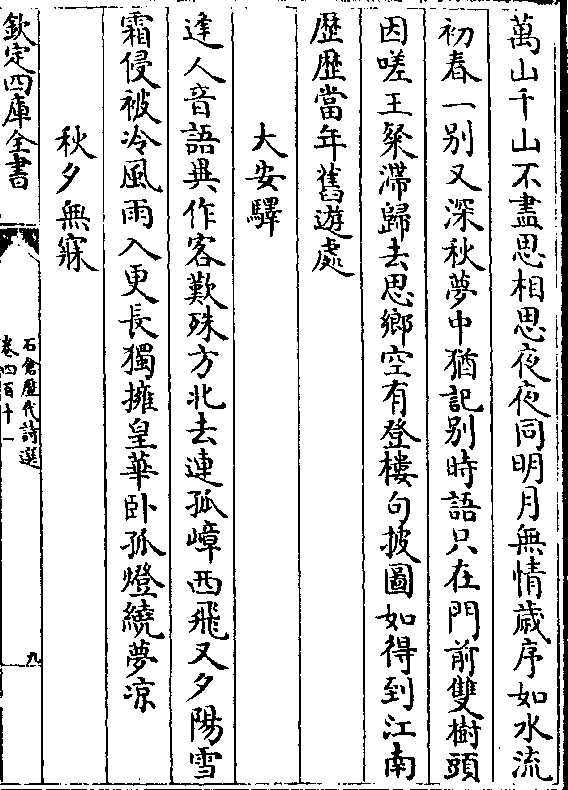 萬山千山不盡思相思夜夜同明月無情歲序如水流
初春一别又深秋夢中猶記别時語只在門前雙樹頭
因嗟王粲滯歸去思鄉空有登樓句披圖如得到江南
歴歴當年舊遊處
大安驛
逹人音語異作客歎殊方北去連孤嶂西飛又夕陽雪
霜侵被冷風雨入更長獨擁皇華卧孤燈繞夢凉
秋夕無寐
欽定四庫全書
石倉歴代詩選
卷四百十一
九